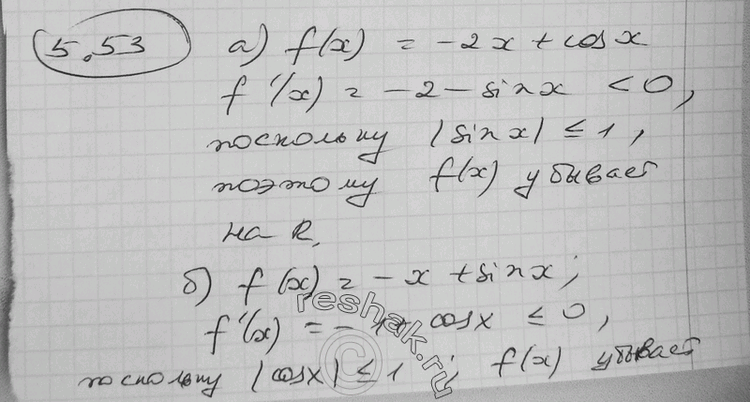 5.53 а) f(x) = -2x + cos x
f'(x) = -2 - sin x < 0,
поскольку |sin x| ≤ 1,
поэтому f(x) убывает
на R.
б) f(x) = -x + sin x;
f'(x) = -1 + cos x ≤ 0,
поскольку |cos x| ≤ 1; f(x) убывает
reshak.ru
©